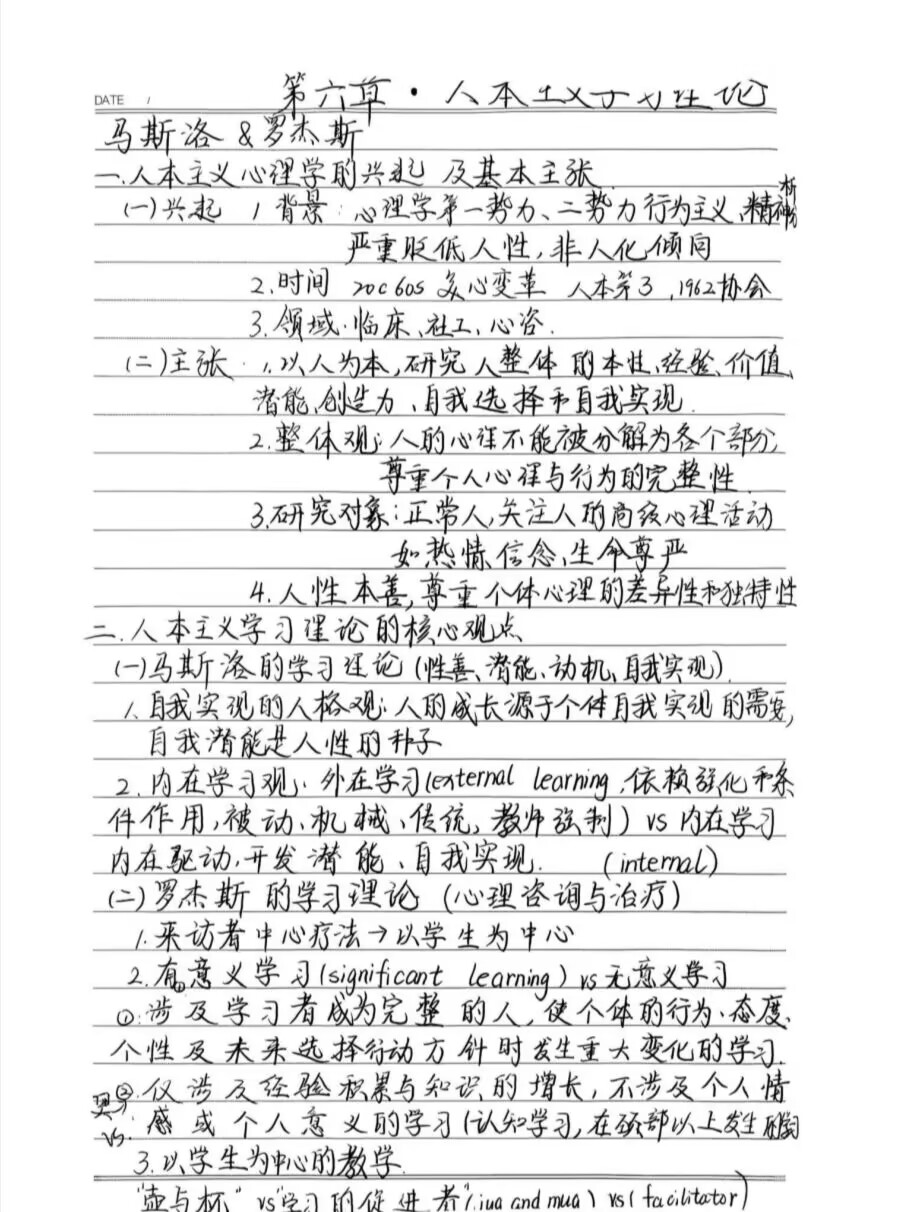 DATE /
第六章·人本主义学习理论
马斯洛&罗杰斯
一.人本主义心理学的兴起 及基本主张
(一)兴起 1 背景:心理学第一势力、二势力行为主义、精神分析
严重贬低人性,非人化倾向
2.时间 20c60s 美心变革 人本第3,1962协会
3.领域·临床、社工、心咨.
(二)主张·1.以人为本,研究人整体的本性、经验、价值、
潜能、创造力、自我选择和自我实现.
2.整体观:人的心理不能被分解为各个部分,
尊重个人心理与行为的完整性.
3.研究对象:正常人,关注人的高级心理活动
如热情、信念、生命尊严
4.人性本善,尊重个体心理的差异性和独特性
二.人本主义学习理论的核心观点
(一)马斯洛的学习理论(性善、潜能、动机、自我实现).
1.自我实现的人格观:人的成长源于个体自我实现的需要,
自我潜能是人性的种子
2.内在学习观:外在学习(external learning,依赖强化和条
件作用,被动、机械、传统,教师强制)vs内在学习
内在驱动,开发潜能、自我实现. (internal)
(二)罗杰斯的学习理论(心理咨询与治疗)
1.来访者中心疗法→以学生为中心
2.有意义学习(significant learning)vs无意义学习
①.涉及学习者成为完整的人,使个体的行为、态度、
个性及未来选择行动方针时发生重大变化的学习.
②.仅涉及经验积累与知识的增长,不涉及个人情
vs.感或个人意义的学习(认知学习,在颈部以上发生的学习
3.以学生为中心的教学.
"壶与杯"vs"学习的促进者"(jug and mug)vs(facilitator)